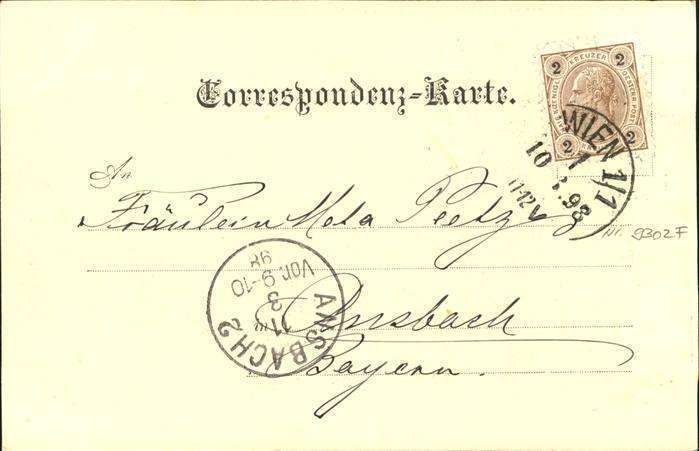 Correspondenz-Karte.
2 KREUZER 2
2 2
WIEN 1/1
1
10 3. 98
11-12 V
An
Fräulein Meta Peetz
Nr. 9302F
ANSBACH 2
11
3
Vor. 9-10
98
in Ansbach
Bayern.